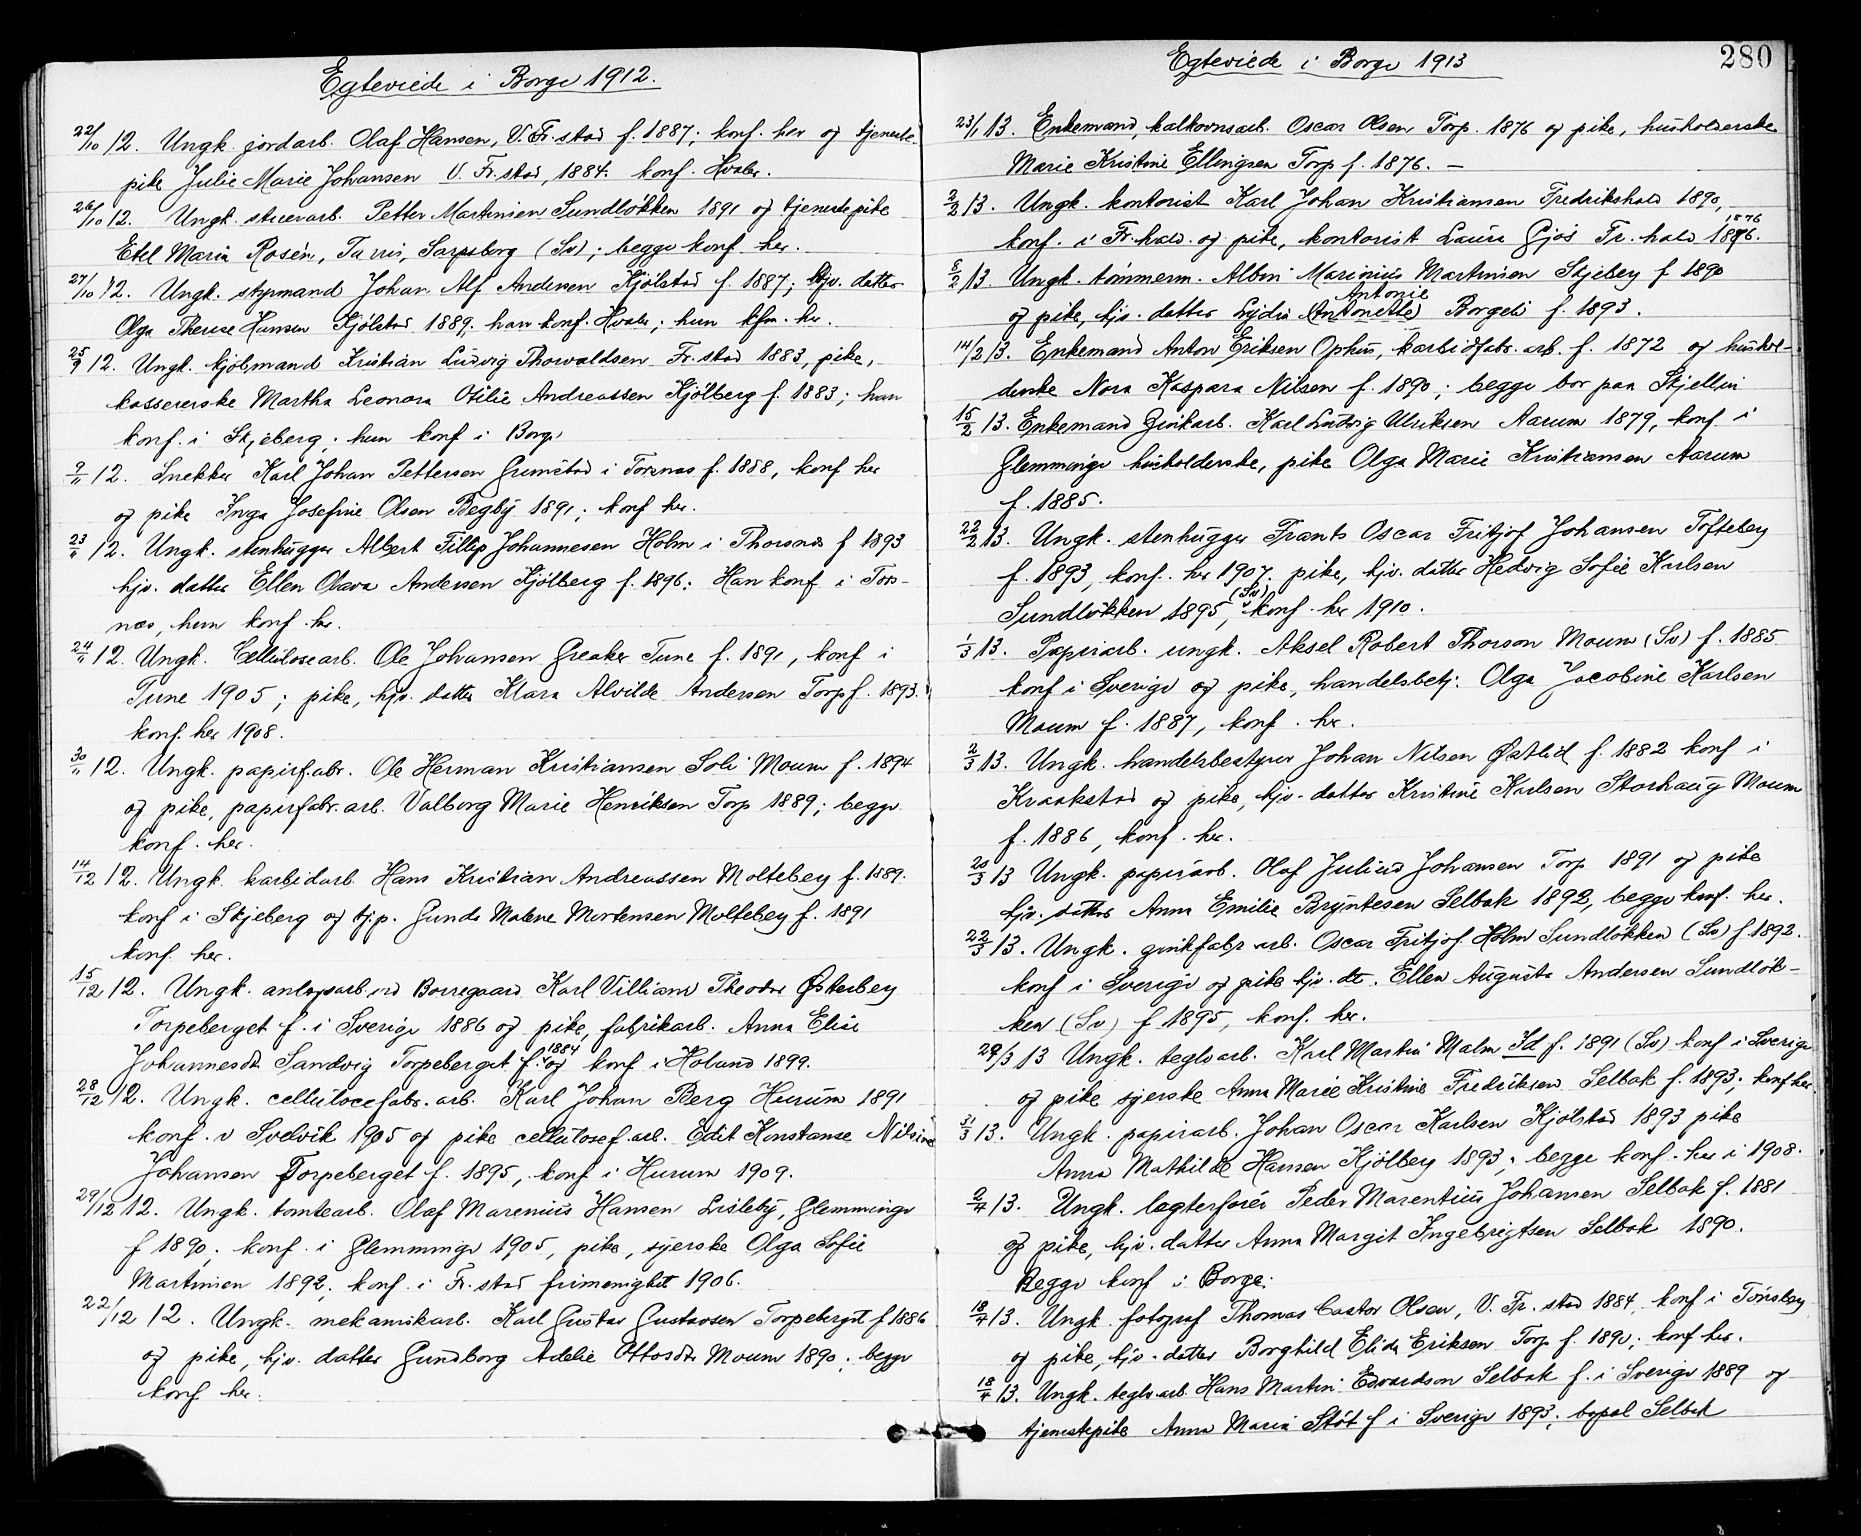 Egteviede i Borge 1912.
22/10 12. Ungk. jordarb. Olaf Hansen, V. Fr.stad f. 1887; konf. her og tjeneste-
pike Julie Marie Johansen V. Fr.stad, 1884. konf. Hvaler.
26/10 12. Ungk. stuerarb. Petter Martinsen Sundløkken 1891 og tjenestepike
Etel Maria Rosén, Sarpsborg (Sv); begge konf. her.
27/10 12. Ungk. styrmand Johan Alf Andersen Kjølstad f. 1887; hjv. datter
Olga Therese Hansen Kjølstad 1889. han konf. Hvaler; hun kfm. her.
25/9 12. Ungk. kjøbmand Kristian Ludvig Thorvaldsen Fr.stad 1883, pike,
kassererske Martha Leonora Otilie Andreassen Kjølberg f. 1883; han
konf. i Skjeberg; hun konf i Borge
9/11 12. Snekker Karl Johan Pettersen Grimstad i Torsnæs f. 1888, konf her
og pike Inga Josefine Olsen Begby 1891; konf her.
23/11 12. Ungk. stenhugger Albert Fillip Johannesen Holm i Thorsnæs f 1893
hjv. datter Ellen Olava Andersen Kjølberg f. 1896; Han konf i Tors-
næs, hun konf her.
24/11 12. Ungk. Cellulosearb. Ole Johansen Greaker Tune f. 1891, konf i
Tune 1905; pike, hjv. datter Klara Alvilde Andersen Torp f. 1893.
konf. her 1908.
30/11 12. Ungk. papirf.abr. Ole Herman Kristiansen Soli Moum f. 1894
og pike, papirfabr.arb. Valborg Marie Henriksen Torp 1889; begge
konf. her.
14/12 12. Ungk. karbidarb. Hans Kristian Andreassen Moltebey f. 1889.
konf i Skjeberg og tjp. Gunda Malene Mortensen Moltebey f. 1891
konf her.
15/12 12. Ungk. anlægsarb. ved Borregaard Karl Villiam Theodor Østerbey
Torpeberget f. i Sverige 1886 og pike, fabrikarb. Anna Elise
Johannesdt. Sandvig Torpeberget f. 1884 og konf i Høland 1899.
28/12 12. Ungk. cellulocefabr. arb. Karl Johan Berg Hurum 1891
konf. i Svelvik 1905 og pike cellulosef.arb. Edit Konstanse Nilsine
Johansen Torpeberget f. 1895, konf i Hurum 1909.
29/12 12. Ungk. tomtearb. Olaf Marenius Hansen Lisleby, Glemminge
f 1890; konf. i Glemminge 1905, pike, syerske Olga Sofie
Martinsen 1892; konf. i Fr.stad frimenighet 1906.
22/12 12. Ungk. mekanikarb. Karl Gustav Gustavsen Torpeberget f 1886
og pike, hjv. datter Gundborg Adelie Ottosdtr Moum 1890. begge
konf her.
Egteviede i Borge 1913
280
23/1 13. Enkemand, kalkovnsarb. Oscar Olsen Torp. 1876 og pike, husholderske
Marie Kristine Ellingsen Torp f. 1876. —
2/2 13. Ungk. kontorist Karl Johan Kristiansen Fredrikshald 1890,
konf. i Fr.hald. og pike, kontorist Laura Gjøs Fr.hald 1876. 1876
8/2 13 Ungk. tømmerm. Albin Marinius Martinsen Skjebey f 1890
og pike, hjv. datter Lydia (Antonette) Antonie Borgeli f. 1893.
14/2 13. Enkemand Anton Eriksen Ophus, karbidfabr. arb. f. 1872 og hushol-
derske Nora Kaspara Nilsen f. 1890; begge bor paa Skjellin
15/2 13. Enkemand Zinkarb. Karl Ludvig Ulriksen Aarum 1879, konf i
Glemminge husholderske, pike Olga Marie Kristiansen Aarum
f. 1885.
22/2 13. Ungk. stenhugger Frants Oscar Fritjof Johansen Toftebey
f. 1893, konf. her 1907. pike, hjv. datter Hedvig Sofie Karlsen
Sundløkken 1895, (Sv) konf. her 1910.
1/3 13. Papirarb. ungk. Aksel Robert Thorson Moum (Sv) f. 1885
konf i Sverige og pike, handelsbetj. Olga Jacobine Karlsen
Moum f. 1887, konf. her.
2/3 13. Ungk. handelsbestyrer Johan Nilsen Østlid f. 1882 konf i
Kraakstad og pike, hjv. datter Kristine Karlsen Storhaug Moum
f. 1886, konf. her.
20/3 13 Ungk. papirarb. Olaf Julius Johansen Torp 1891 og pike
hjv. datter Anna Emilie Bryntesen Selbak 1892, begge konf. her.
22/3 13. Ungk. zinkfabr arb. Oscar Fritjof Holm Sundløkken (Sv) f 1892.
konf i Sverige og pike hjv. dt. Ellen Augusta Andersen Sundløk-
ken (Sv) f 1895, konf. her.
29/3 13 Ungk. teglv.arb. Karl Martin Malm Id f. 1891 (Sv) konf i Sverige
og pike syerske Anna Marie Kristine Fredriksen Selbak f. 1893; konf her
31/3 13. Ungk. papirarb. Johan Oscar Karlsen Kjølstad 1893 pike
Anna Mathilde Hansen Kjølbey 1893; begge konf. her i 1908.
2/4 13. Ungk. lægterfører Peder Marentius Johansen Selbak f. 1881
og pike, hjv. datter Anna Margit Ingebrigtsen Selbak 1890.
Begge konf i Borge.
18/4 13. Ungk. fotograf Thomas Castor Olsen, V. Fr.stad 1884, konf i Tønsbey
og pike, hjv. datter Borghild Elida Eriksen Torp f. 1890; konf her.
18/4 13. Ungk. teglv.arb. Hans Martin Edvardson Selbak f. i Sverige 1889 og
tjenestepike Anna Maria Støt f i Sverige 1893; bopæl Selbak